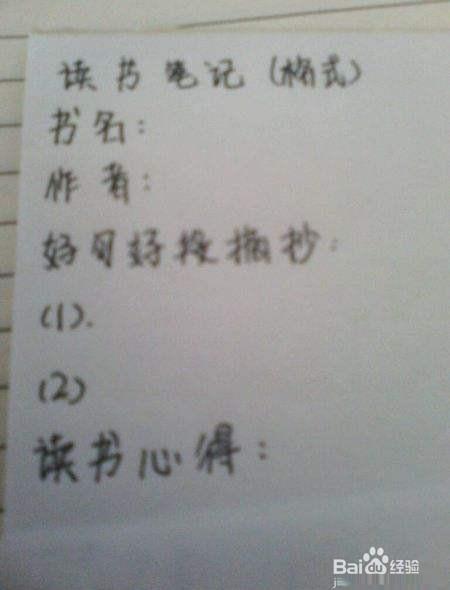 读书笔记（格式）
书名：
作者：
好句好段摘抄：
(1).
(2)
读书心得：
Baidu经验